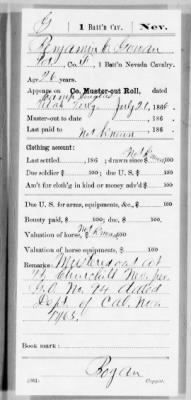 G | 1 Batt'n Cav. | Nev.
Benjamin
Co. , 1 Batt'n Nevada Cavalry.
Age 26 years.
Appears on Co. Muster-out Roll, dated
Camp Douglas
Utah Terry July 21, 1866.
Muster-out to date , 186 .
Last paid to , 186 .
Not known
Clothing account:
Last settled , 186 ; drawn since $ 100
Due soldier $ 100; due U. S. $ 100
Am't for cloth'g in kind or money adv'd $ 100
Due U. S. for arms, equipments, &c., $ 100
Bounty paid, $ 100; due $ 100
Valuation of horse, $ 100
Not known
Valuation of horse equipments, $ 100
Remarks: Mustered out at
Ft Churchill Nev. per
G.O. No. 74 dated
Dept. of Cal. Nov.
1865.
Book mark:
Bogan
(361) Copyist.